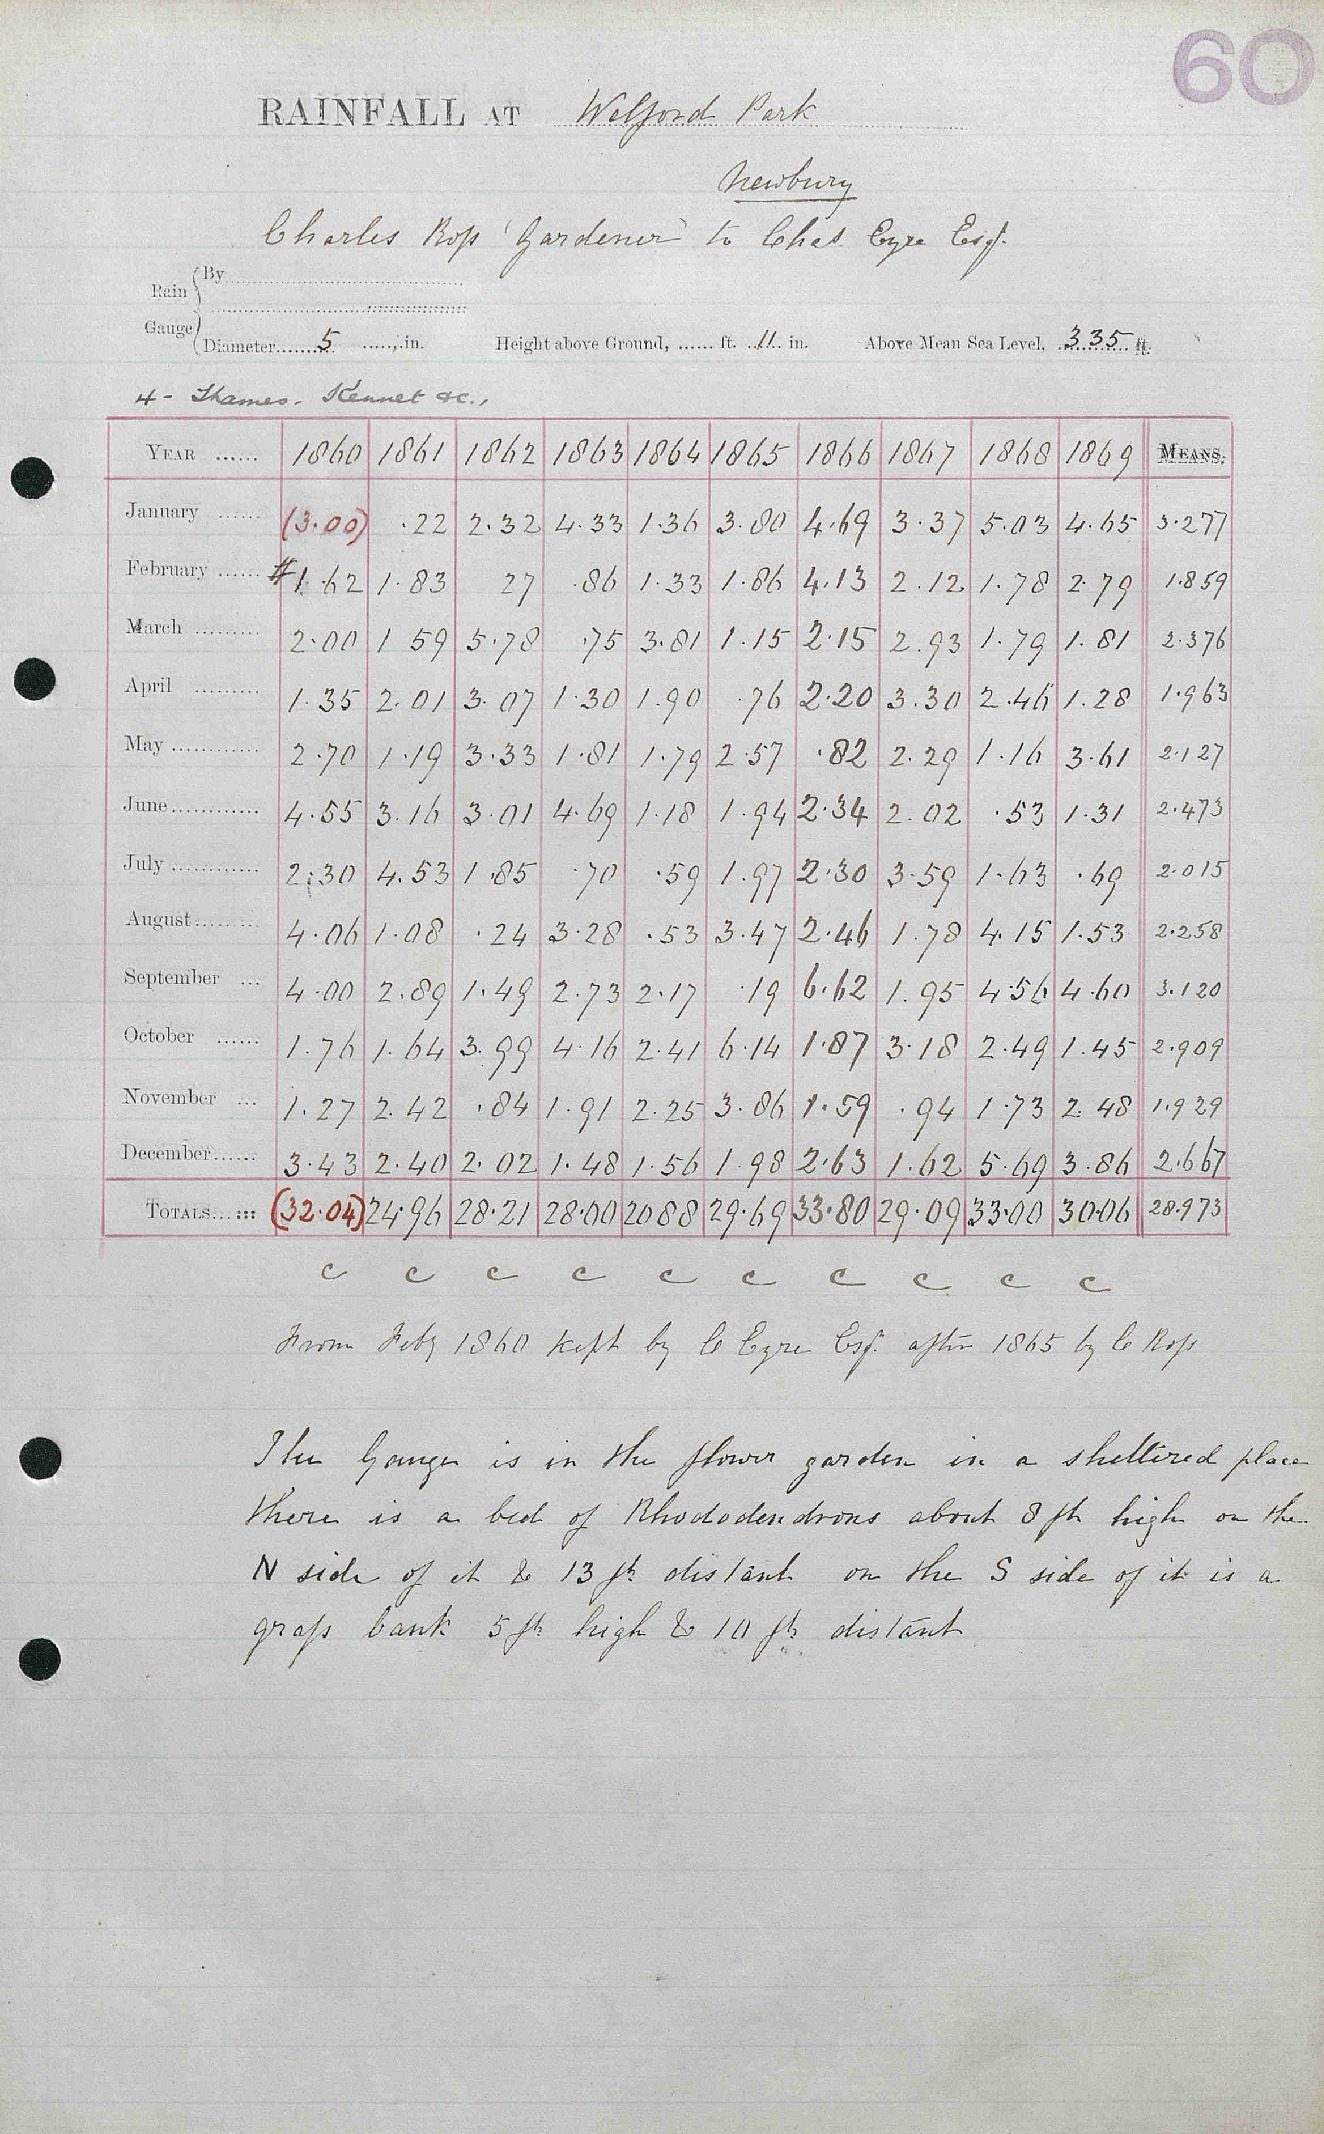 60
RAINFALL AT Welford Park
Newbury
Charles Ross 'Gardener' to Chas. Eyre Esq.
Rain Gauge
By
Diameter 5 in. Height above Ground, ft. 11 in. Above Mean Sea Level, 335 ft.
4 - Thames. Kennet &c.,
YEAR 1860 1861 1862 1863 1864 1865 1866 1867 1868 1869 MEANS.
January (3.00) .22 2.32 4.33 1.36 3.80 4.69 3.37 5.03 4.65 3.277
February #1.62 1.83 27 .86 1.33 1.86 4.13 2.12 1.78 2.79 1.859
March 2.00 1 59 5.78 .75 3.81 1.15 2.15 2.93 1.79 1.81 2.376
April 1.35 2.01 3.07 1.30 1.90 .76 2.20 3.30 2.46 1.28 1.963
May 2.70 1.19 3.33 1.81 1.79 2.57 .82 2.29 1.16 3.61 2.127
June 4.55 3.16 3.01 4.69 1.18 1.94 2.34 2.02 .53 1.31 2.473
July 2.30 4.53 1.85 .70 .59 1.97 2.30 3.59 1.63 .69 2.015
August 4.06 1.08 .24 3.28 .53 3.47 2.46 1.78 4.15 1.53 2.258
September 4.00 2.89 1.49 2.73 2.17 .19 6.62 1.95 4.56 4.60 3.120
October 1.76 1.64 3.99 4.16 2.41 6.14 1.87 3.18 2.49 1.45 2.909
November 1.27 2.42 .84 1.91 2.25 3.86 1.59 .94 1.73 2.48 1.929
December 3.43 2.40 2.02 1.48 1.56 1.98 2.63 1.62 5.69 3.86 2.667
TOTALS (32.04) 24.96 28.21 28.00 20.88 29.69 33.80 29.09 33.00 30.06 28.973
c c c c c c c c c c
From Feby 1860 kept by C Eyre Esq. after 1865 by C Ross
The Gauge is in the flower garden in a sheltered place
there is a bed of Rhododendrons about 8 ft high on the
N side of it & 13 ft distant on the S side of it is a
grass bank 5 ft high & 10 ft distant